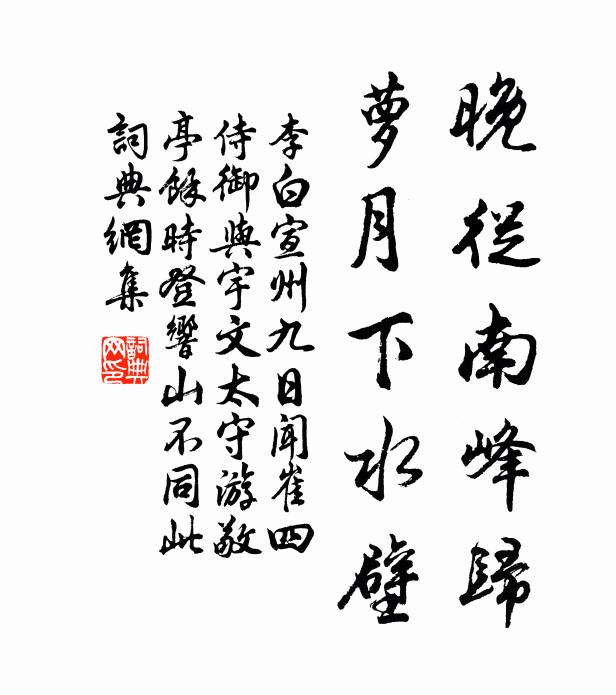 晚從南峰歸
蘿月下水壁
李白宣州九日聞崔四
侍御與宇文太守游敬
亭餘時登響山不同此
詞典網集
詞典網印